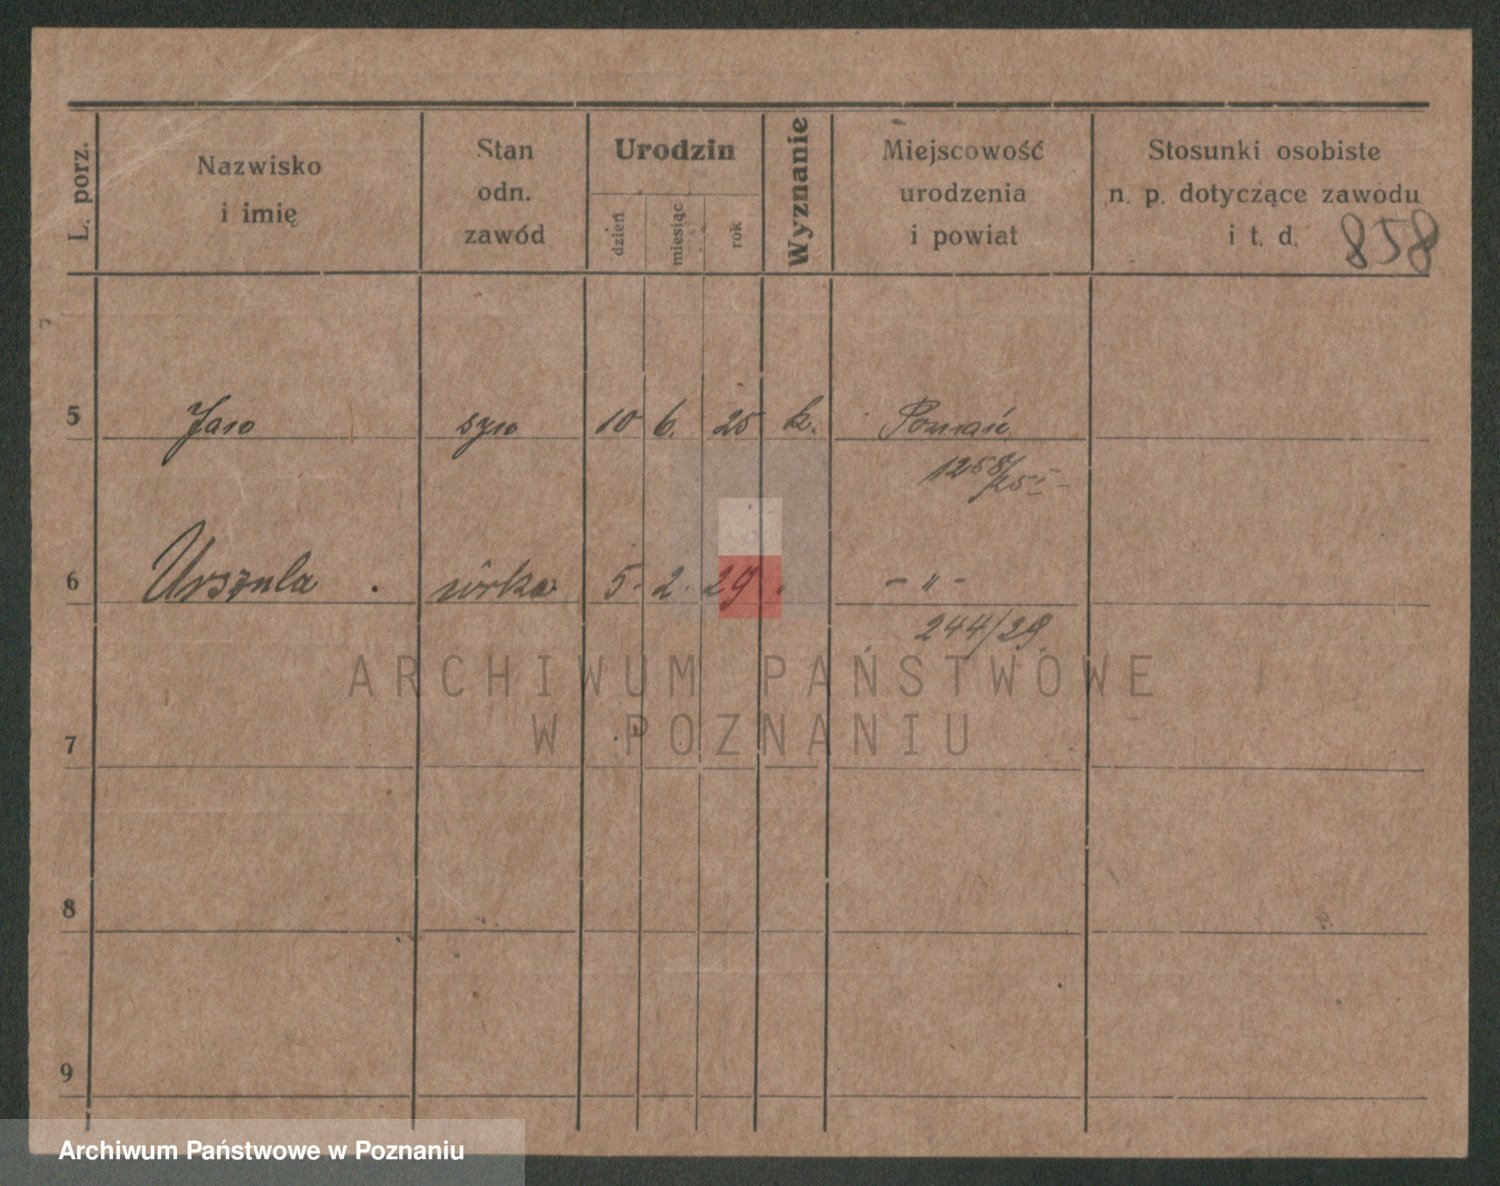 L. porz.
Nazwisko
i imię
Stan
odn.
zawód
Urodzin
dzień
miesiąc
rok
Wyznanie
Miejscowość
urodzenia
i powiat
Stosunki osobiste
n. p. dotyczące zawodu
i t. d.
858
5 Jan syn 10 6. 25 k. Poznań
1258/25 I
6 Urszula córka 5. 2. 29 " - " -
244/29
7
8
9
ARCHIWUM PAŃSTWOWE
W POZNANIU
Archiwum Państwowe w Poznaniu